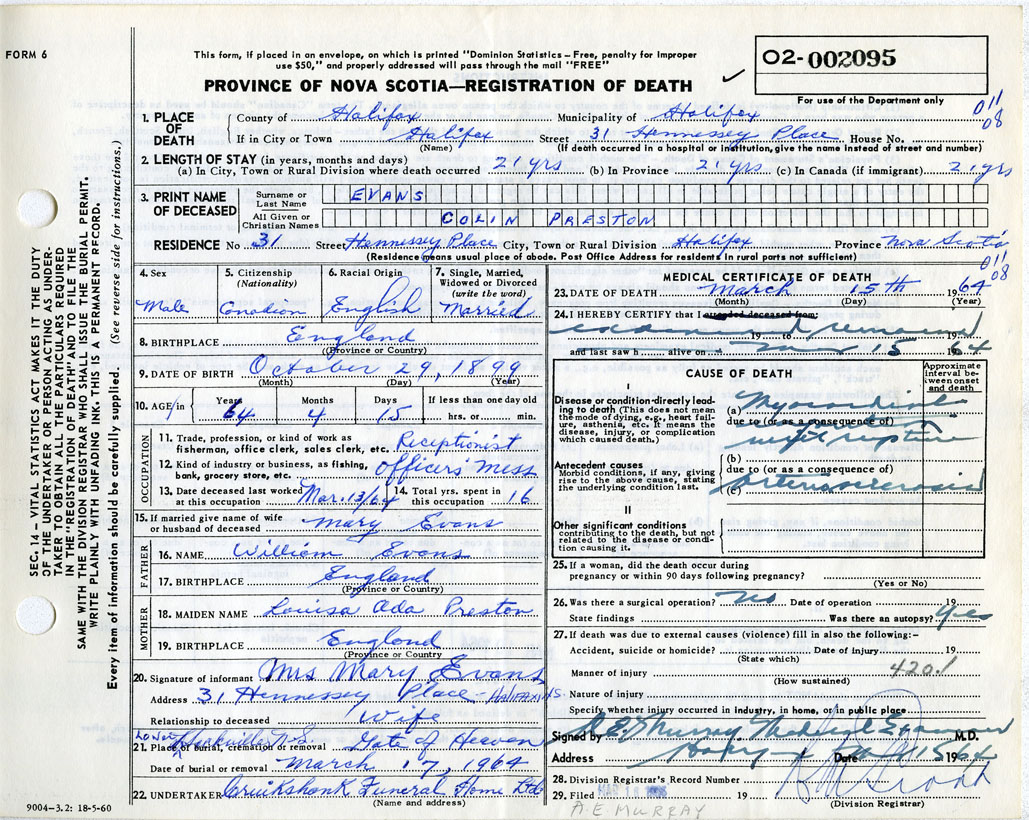 FORM 6
This form, if placed in an envelope, on which is printed "Dominion Statistics – Free, penalty for improper
use $50," and properly addressed will pass through the mail "FREE"
PROVINCE OF NOVA SCOTIA—REGISTRATION OF DEATH
✓
O2-002095
For use of the Department only
011
08
1. PLACE OF DEATH
County of Halifax Municipality of Halifax
If in City or Town Halifax Street 31 Hennessey Place House No.
(Name) (If death occurred in a hospital or institution, give the name instead of street and number)
2. LENGTH OF STAY (in years, months and days)
(a) In City, Town or Rural Division where death occurred 21 yrs (b) In Province 21 yrs (c) In Canada (if immigrant) 21 yrs
3. PRINT NAME OF DECEASED
Surname or Last Name EVANS
All Given or Christian Names COLIN PRESTON
RESIDENCE No. 31 Street Hennessey Place City, Town or Rural Division Halifax Province Nova Scotia
(Residence means usual place of abode. Post Office Address for residents in rural parts not sufficient)
011
08
4. Sex
Male
5. Citizenship
(Nationality)
Canadian
6. Racial Origin
English
7. Single, Married,
Widowed or Divorced
(write the word)
Married
8. BIRTHPLACE England
(Province or Country)
9. DATE OF BIRTH October 29, 1899
(Month) (Day) (Year)
10. AGE in Years Months Days If less than one day old
64 4 15 hrs. or min.
OCCUPATION
11. Trade, profession, or kind of work as
fisherman, office clerk, sales clerk, etc. Receptionist
12. Kind of industry or business, as fishing,
bank, grocery store, etc. Officers' Mess
13. Date deceased last worked at this occupation Mar. 13/64 14. Total yrs. spent in this occupation 16
15. If married give name of wife
or husband of deceased Mary Evans
FATHER
16. NAME William Evans
17. BIRTHPLACE England
(Province or Country)
MOTHER
18. MAIDEN NAME Louisa Ada Preston
19. BIRTHPLACE England
(Province or Country
20. Signature of informant Mrs Mary Evans
Address 31 Hennessey Place - HALIFAX N.S.
Relationship to deceased Wife
Lower Sackville N.S. Gate of Heaven
21. Place of burial, cremation or removal
Date of burial or removal March 17, 1964
22. UNDERTAKER Cruikshank Funeral Home Ltd
(Name and address)
9004–3.2: 18-5-60
MEDICAL CERTIFICATE OF DEATH
23. DATE OF DEATH March 15th 1964
(Month) (Day) (Year)
24. I HEREBY CERTIFY that I attended deceased from:
examined remains
19 to 19
and last saw h alive on Mar 15 1964
CAUSE OF DEATH
Approximate
interval be-
tween onset
and death
I
Disease or condition directly lead-
ing to death (This does not mean
the mode of dying, e.g., heart fail-
ure, asthenia, etc. It means the
disease, injury, or complication
which caused death.)
(a) Myocardial
infarction
due to (or as a consequence of)
with rupture
(b)
Antecedent causes
Morbid conditions, if any, giving
rise to the above cause, stating
the underlying condition last.
due to (or as a consequence of)
(c) arteriosclerosis
II
Other significant conditions
contributing to the death, but not
related to the disease or condi-
tion causing it.
25. If a woman, did the death occur during
pregnancy or within 90 days following pregnancy?
(Yes or No)
26. Was there a surgical operation? no Date of operation 19
State findings Was there an autopsy? Yes
27. If death was due to external causes (violence) fill in also the following:–
Accident, suicide or homicide? Date of injury 19
(State which)
Manner of injury 420.1
(How sustained)
Nature of injury
Specify whether injury occurred in industry, in home, or in public place
Signed by A.E. Murray Medical Examiner M.D.
Address Date Mar 15 1964
28. Division Registrar's Record Number
29. Filed MAR 18 19
(Division Registrar)
A.E MURRAY
SEC. 14 – VITAL STATISTICS ACT MAKES IT THE DUTY
OF THE UNDERTAKER OR PERSON ACTING AS UNDER-
TAKER TO OBTAIN ALL THE PARTICULARS REQUIRED
IN THE "REGISTRATION OF DEATH" AND TO FILE THE
SAME WITH THE DIVISION REGISTRAR WHO SHALL ISSUE THE BURIAL PERMIT.
WRITE PLAINLY WITH UNFADING INK. THIS IS A PERMANENT RECORD.
Every item of information should be carefully supplied. (See reverse side for instructions.)